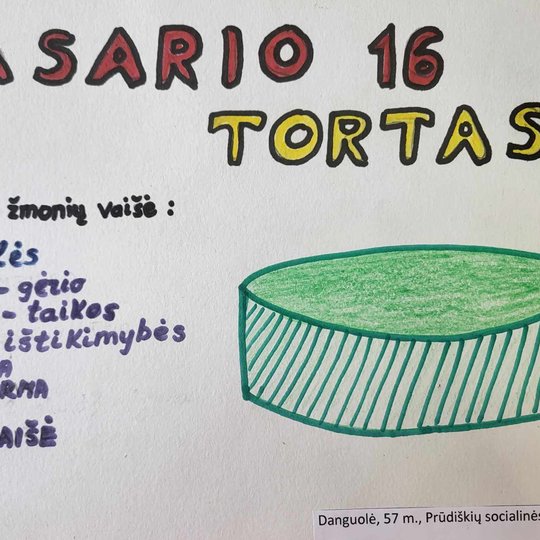 ASARIO 16
TORTAS
žmonių vaišė:
lės
- gėrio
- taikos
ištikimybės
A
RMA
AIŠĖ
Danguolė, 57 m., Prūdiškių socialinės